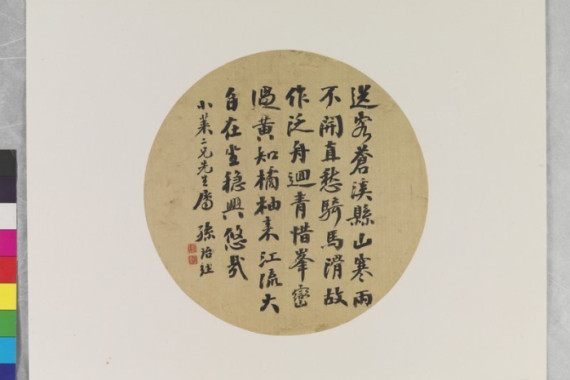 送客蒼溪縣山寒雨
不開直愁騎馬滑故
作泛舟迴青惜峯巒
過黃知橘柚來江流大
自在坐穩興悠哉
小 二兄先生屬 孫